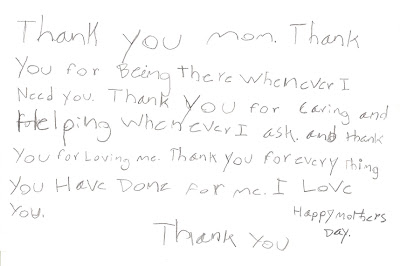 Thank you mom. Thank
You for Being there whenever I
Need you. Thank You for caring and
Helping whenever I ask. and thank
You for Loving me. Thank you for every thing
You Have Done for me. I Love
You.
Happy mothers
Day.
Thank You